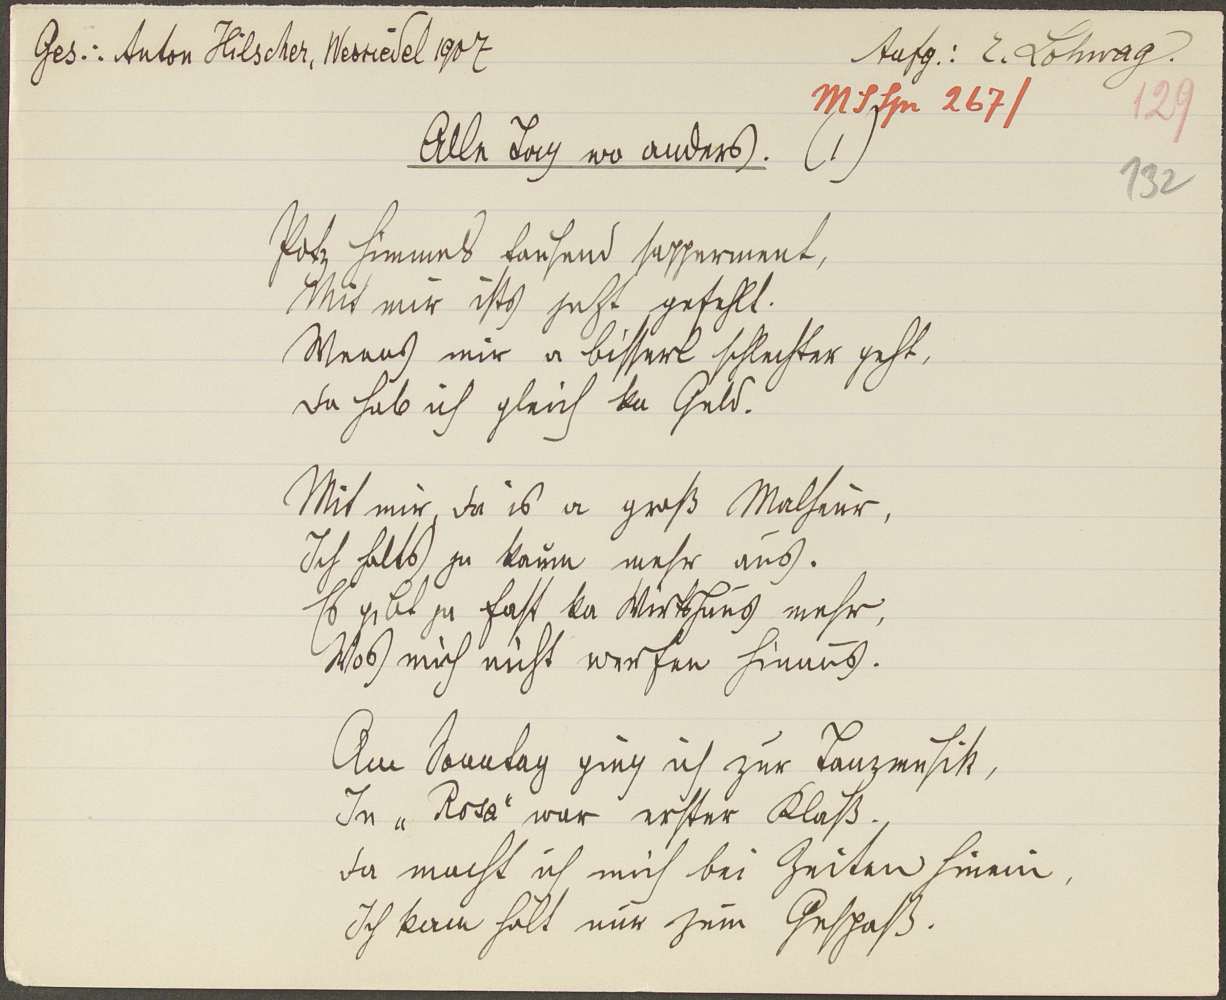 Ges.: Anton Hilscher, Werriedel 1907
Aufg.: E. Lohwag.
MS Spn 267/
129
Alle Tag wo anders. (1)
132
Potz Himmel tausend sapperment,
Mit mir ists jetzt gefehlt.
Wenns mir a bisserl schlechter geht,
da hab ich gleich ka Geld.
Mit mir, da is a groß Malheur,
Ich halts ja kaum mehr aus.
Es gibt ja fast ka Wirtshaus mehr,
Wos mich nicht werfen hinaus.
Am Sonntag ging ich zur Tanzmusik,
In „Rosa“ war erster Klaß.
da macht ich mich bei Zeiten hinein,
Ich kam halt nur zum Gespaß.